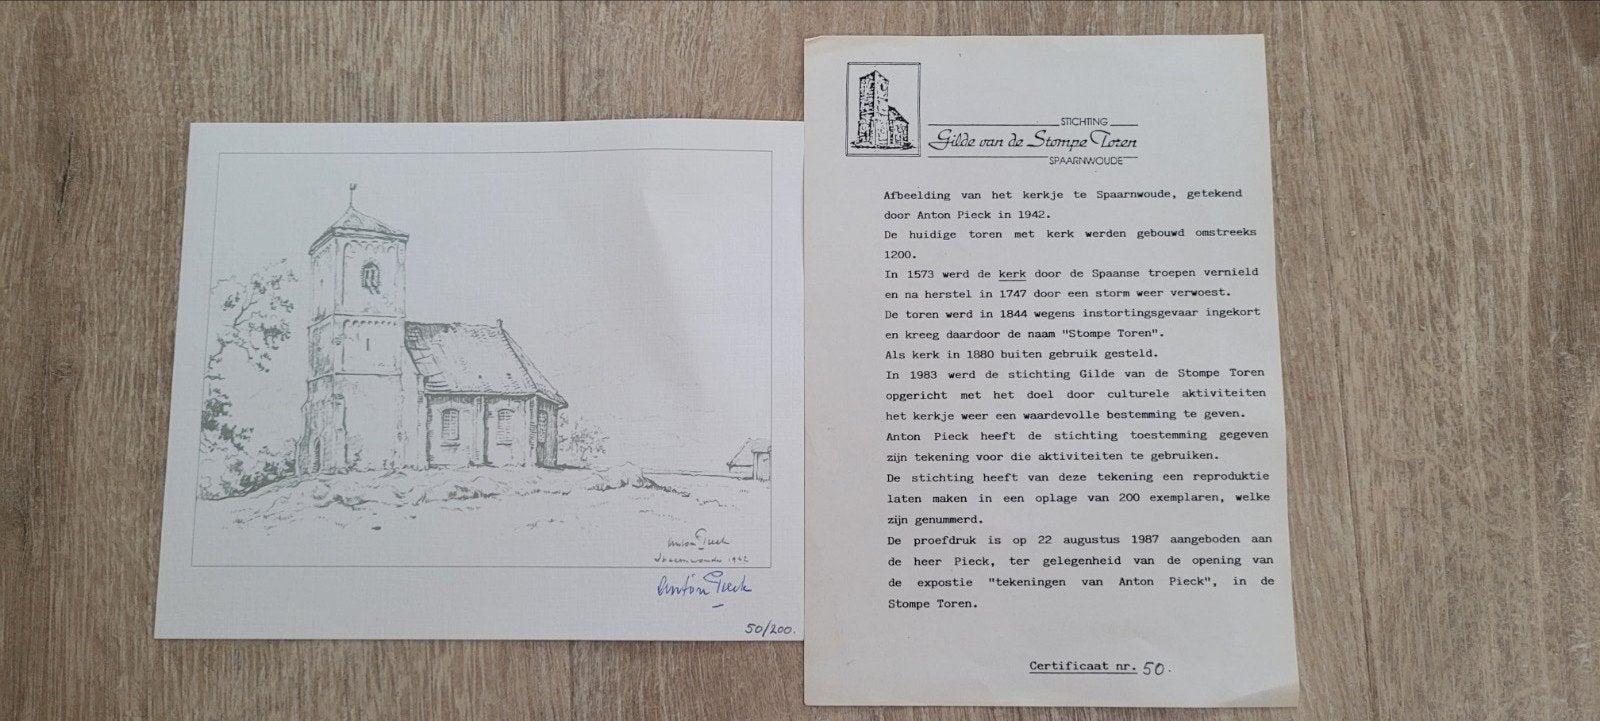 Anton Pieck
Spaarnwoude 1942
Anton Pieck
50/200.
STICHTING
Gilde van de Stompe Toren
SPAARNWOUDE
Afbeelding van het kerkje te Spaarnwoude, getekend
door Anton Pieck in 1942.
De huidige toren met kerk werden gebouwd omstreeks
1200.
In 1573 werd de kerk door de Spaanse troepen vernield
en na herstel in 1747 door een storm weer verwoest.
De toren werd in 1844 wegens instortingsgevaar ingekort
en kreeg daardoor de naam "Stompe Toren".
Als kerk in 1880 buiten gebruik gesteld.
In 1983 werd de stichting Gilde van de Stompe Toren
opgericht met het doel door culturele aktiviteiten
het kerkje weer een waardevolle bestemming te geven.
Anton Pieck heeft de stichting toestemming gegeven
zijn tekening voor die aktiviteiten te gebruiken.
De stichting heeft van deze tekening een reproduktie
laten maken in een oplage van 200 exemplaren, welke
zijn genummerd.
De proefdruk is op 22 augustus 1987 aangeboden aan
de heer Pieck, ter gelegenheid van de opening van
de expostie "tekeningen van Anton Pieck", in de
Stompe Toren.
Certificaat nr. 50.